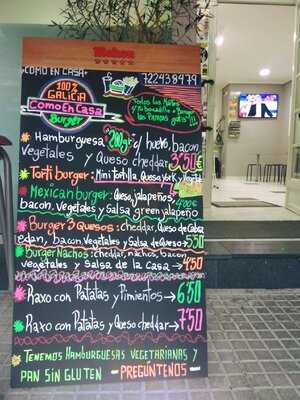 Mahou
"COMO EN CASA"
722438479
100%
GALICIA
Como En Casa
Burger
Todos los Martes
las Pampas gratis!!!
Hamburguesa "200gr" c/ huevo, bacon,
Vegetales y Queso cheddar 3'50€
Torti burger: Mini tortilla, Queso york y
Mexican burger: Queso, jalapeños,
bacon, Vegetales y Salsa green jalapeño 4'00€
Burger 3 Quesos: cheddar, Queso de Cabra
edan, bacon, Vegetales y Salsa de Queso 5'50
Burger Nachos: cheddar, nachos, bacon,
Vegetales y Salsa de la Casa → 4'50
Raxo con Patatas y Pimientos → 6'50
Raxo con Patatas y Queso cheddar → 7'50
* Tenemos Hamburguesas Vegetarianas y
pan sin Gluten - Pregúntenos